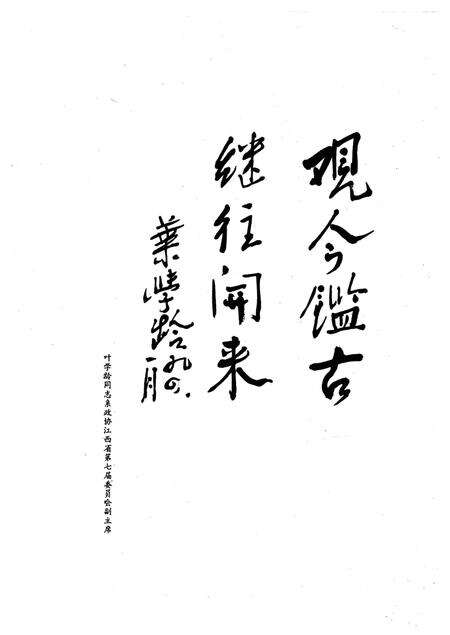 观今鑑古
继往开来
葉学龄九〇.
一月
叶学龄同志系政协江西省第七届委员会副主席